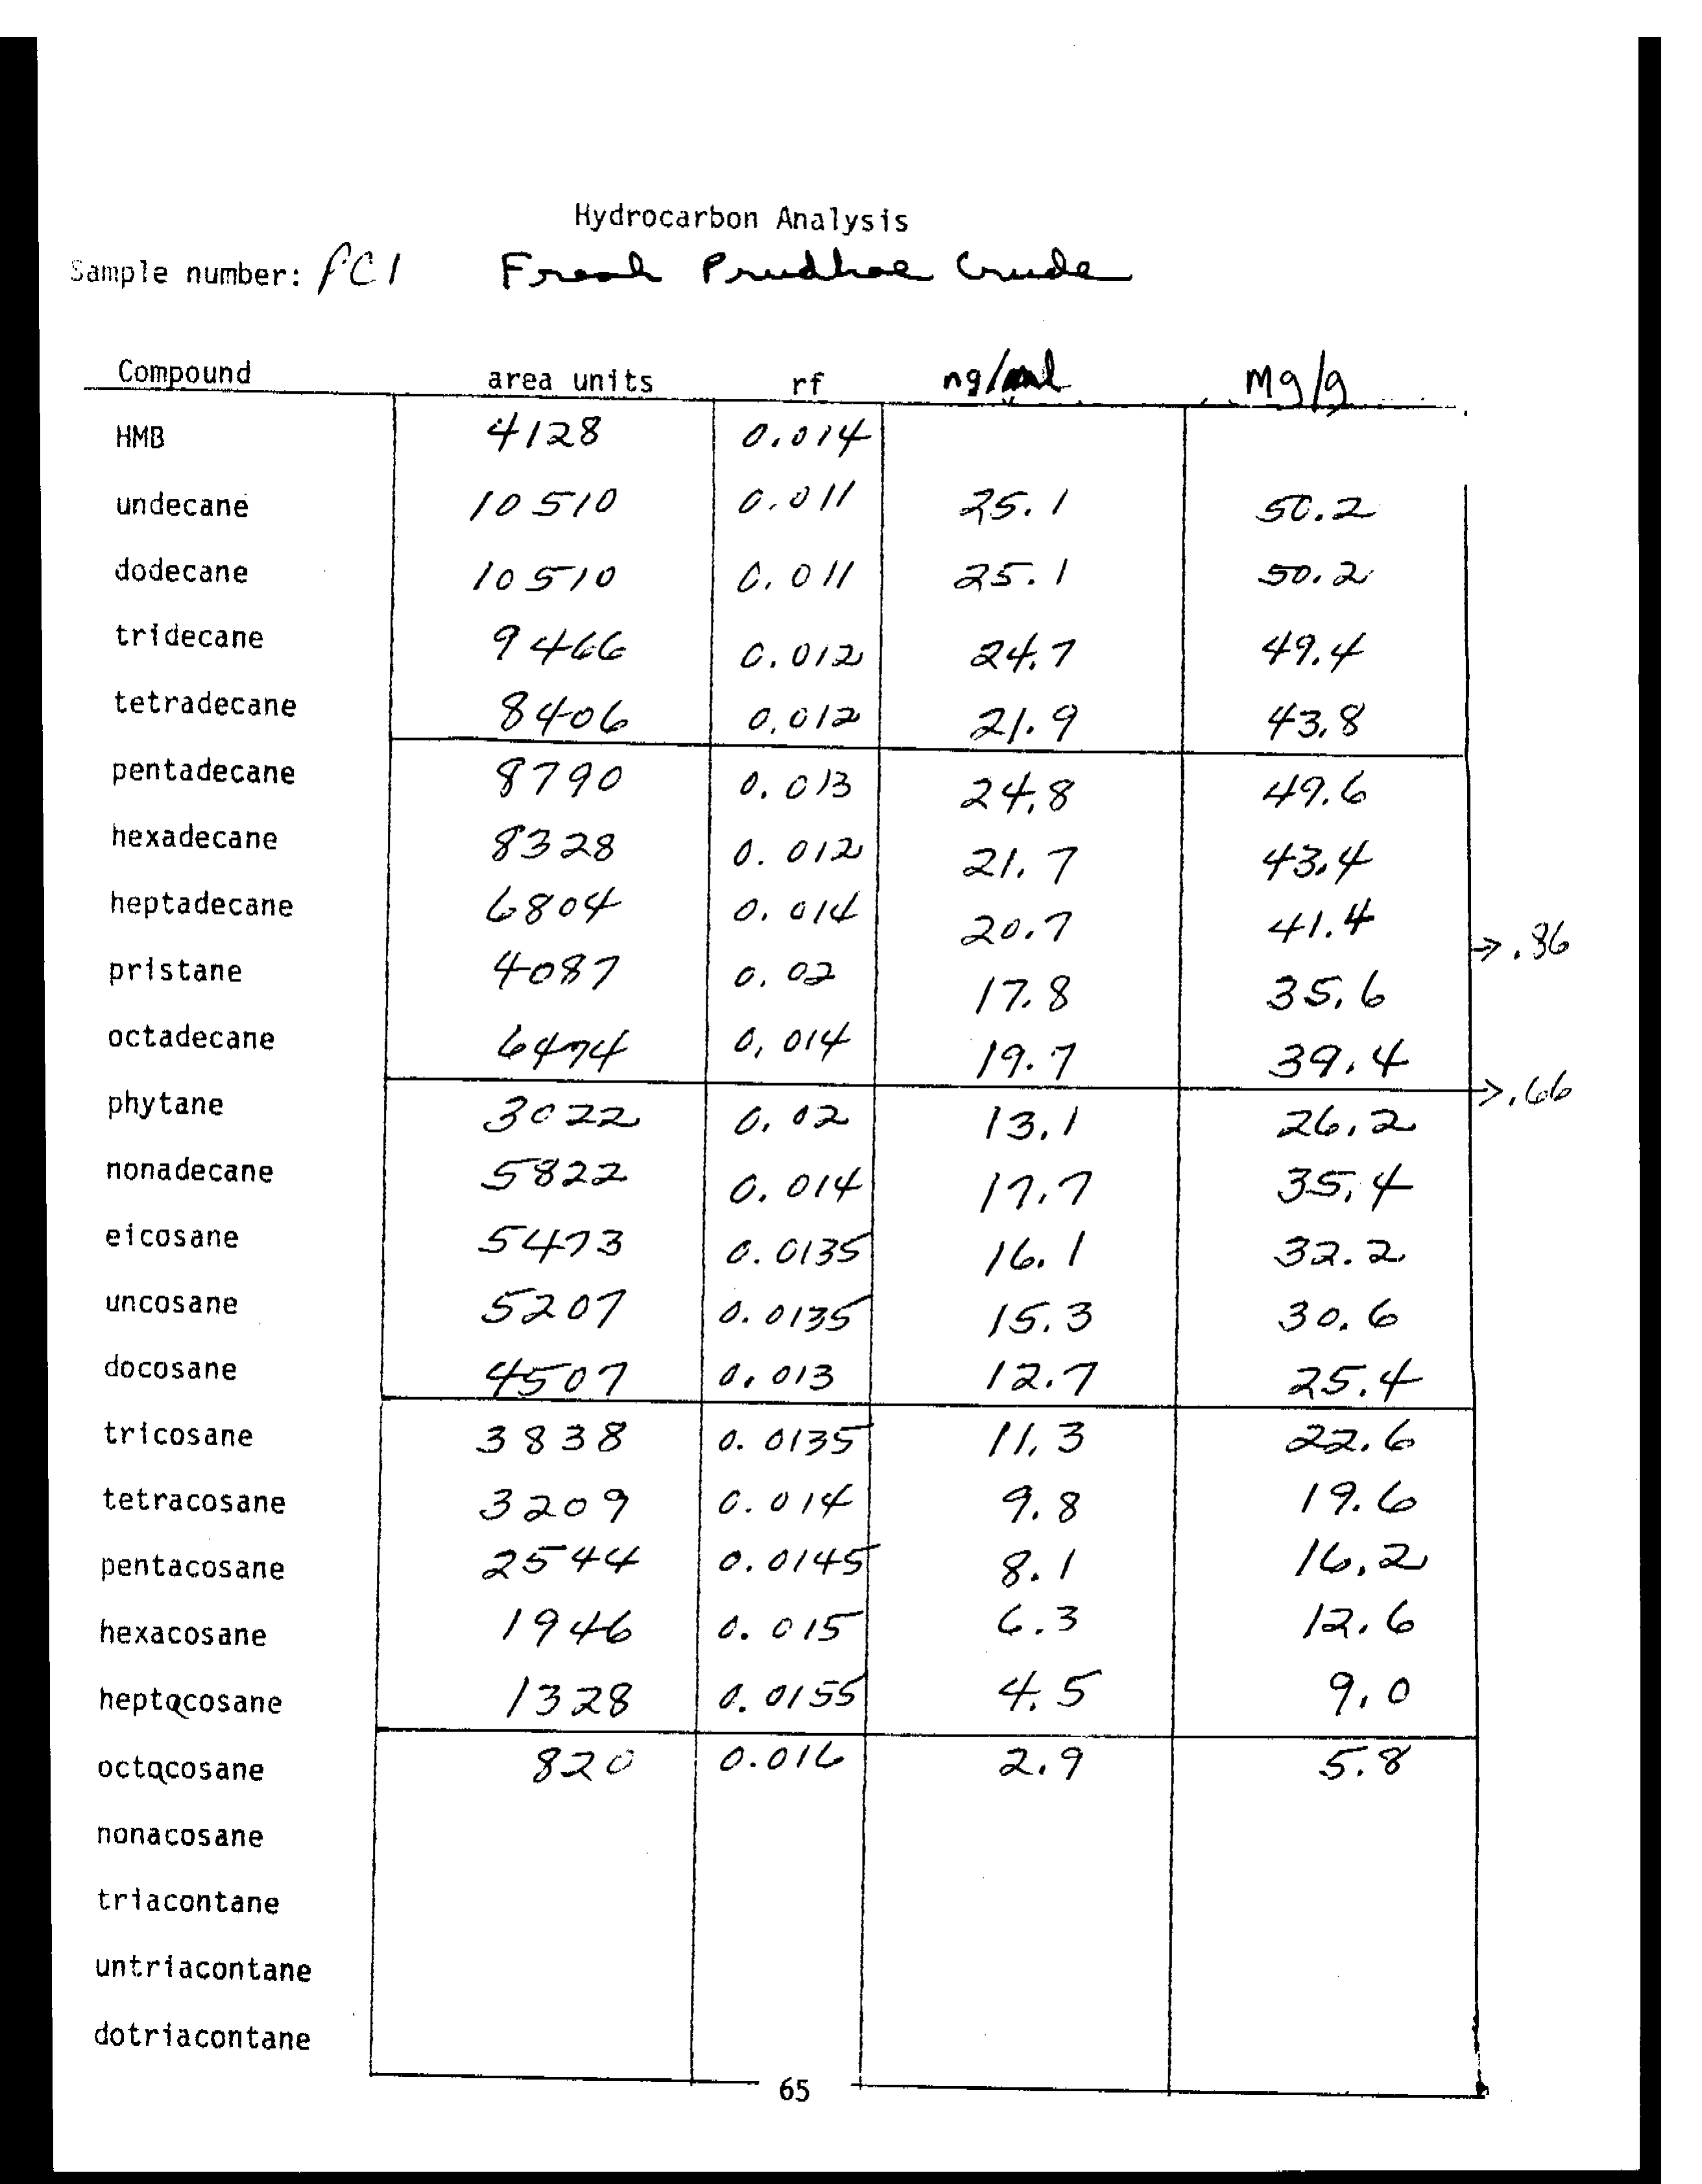 Hydrocarbon Analysis
Sample number: PC1 Fresh Prudhoe Crude
Compound area units rf ng/ml Mg/g
HMB 4128 0.014
undecane 10510 0.011 25.1 50.2
dodecane 10510 0.011 25.1 50.2
tridecane 9466 0.012 24.7 49.4
tetradecane 8406 0.012 21.9 43.8
pentadecane 8790 0.013 24.8 49.6
hexadecane 8328 0.012 21.7 43.4
heptadecane 6804 0.014 20.7 41.4
→ .86
pristane 4087 0.02 17.8 35.6
octadecane 6474 0.014 19.7 39.4
→ .66
phytane 3022 0.02 13.1 26.2
nonadecane 5822 0.014 17.7 35.4
eicosane 5473 0.0135 16.1 32.2
uncosane 5207 0.0135 15.3 30.6
docosane 4507 0.013 12.7 25.4
tricosane 3838 0.0135 11.3 22.6
tetracosane 3209 0.014 9.8 19.6
pentacosane 2544 0.0145 8.1 16.2
hexacosane 1946 0.015 6.3 12.6
heptacosane 1328 0.0155 4.5 9.0
octacosane 820 0.016 2.9 5.8
nonacosane
triacontane
untriacontane
dotriacontane
65